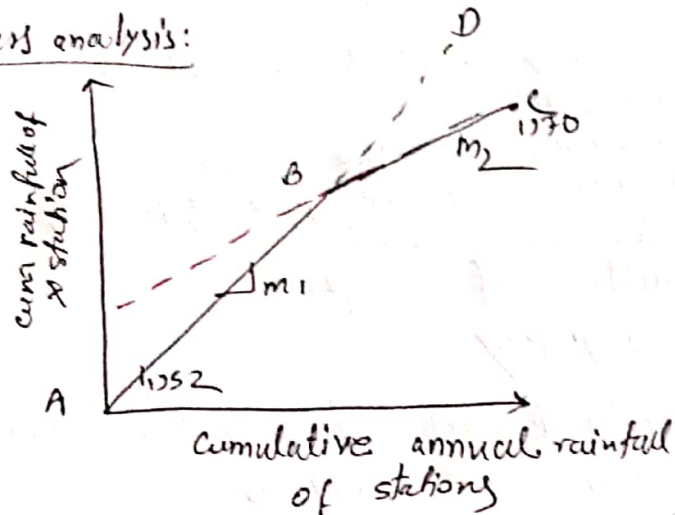 analysis:
D
C
1970
m2
B
m1
1952
A
cum rainfall of
x station
cumulative annual rainfall
of stations